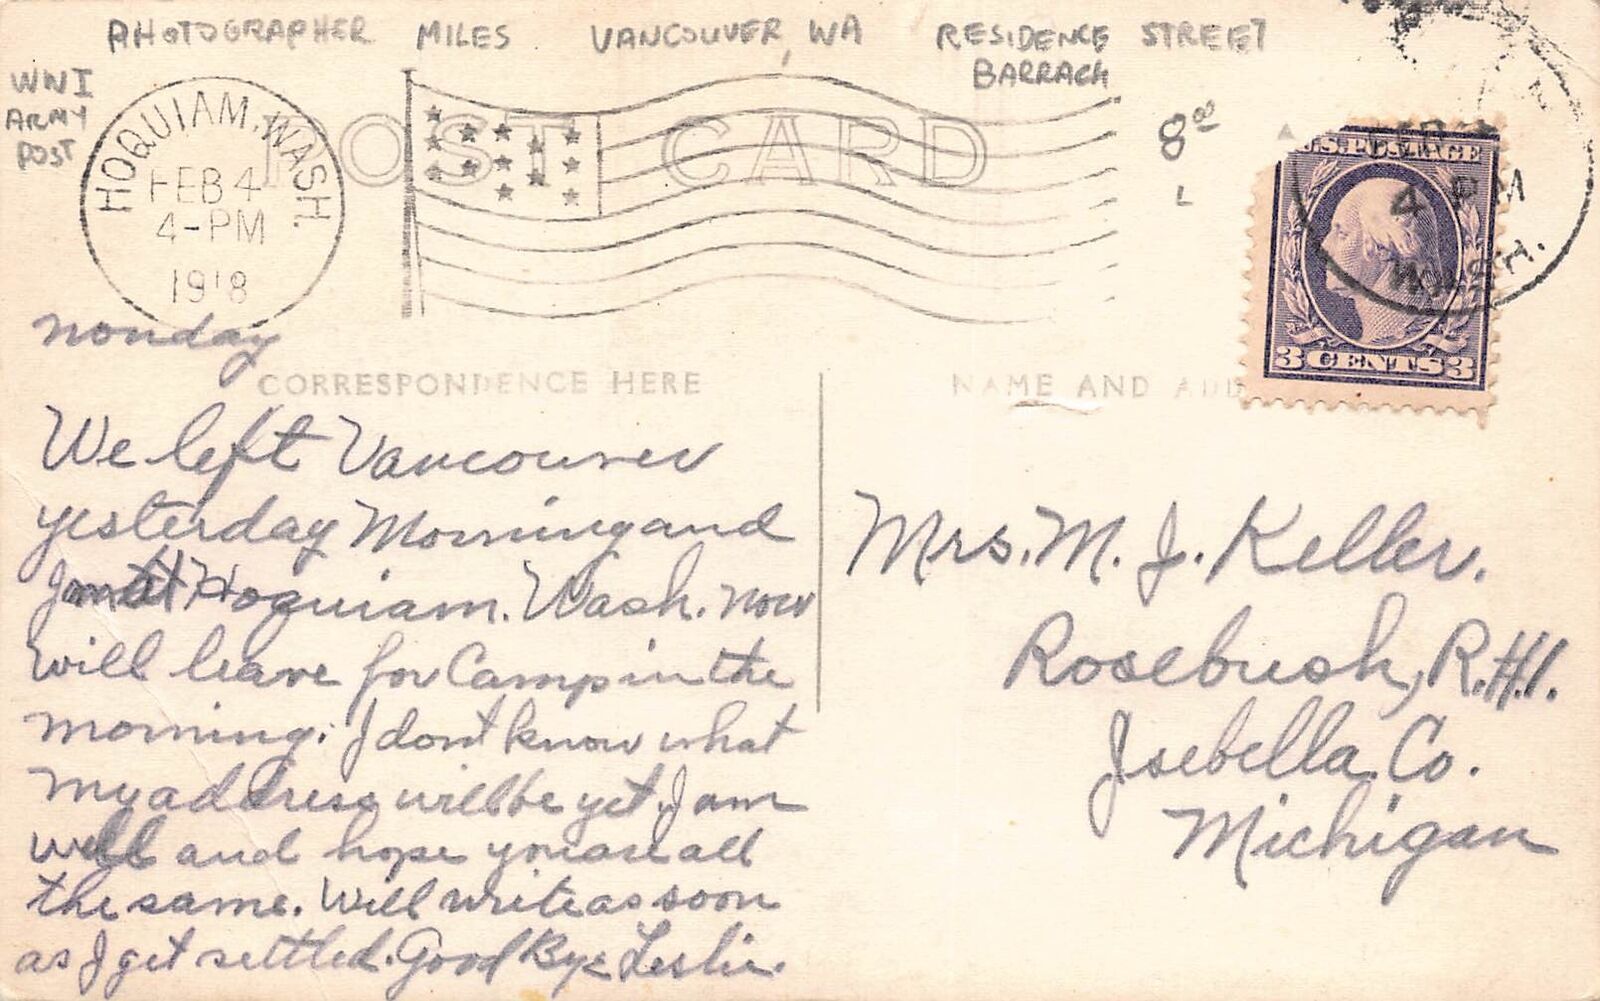 PHOTOGRAPHER MILES VANCOUVER, WA RESIDENCE STREET
BARRACK
WWI
ARMY
POST
HOQUIAM, WASH.
FEB 4
4-PM
1918
POST CARD
8⁰⁰
L
U.S. POSTAGE
3 CENTS 3
4 PM
WASH.
Monday
CORRESPONDENCE HERE
NAME AND ADD
We left Vancouver
yesterday Morning and
I am at Hoquiam. Wash. now
will leave for Camp in the
morning. I dont know what
my address will be yet. I am
well and hope you are all
the same. Will write as soon
as I get settled. Good Bye Leslie.
Mrs. M. J. Keller.
Rosebush, R.#1.
Isebella, Co.
Michigan